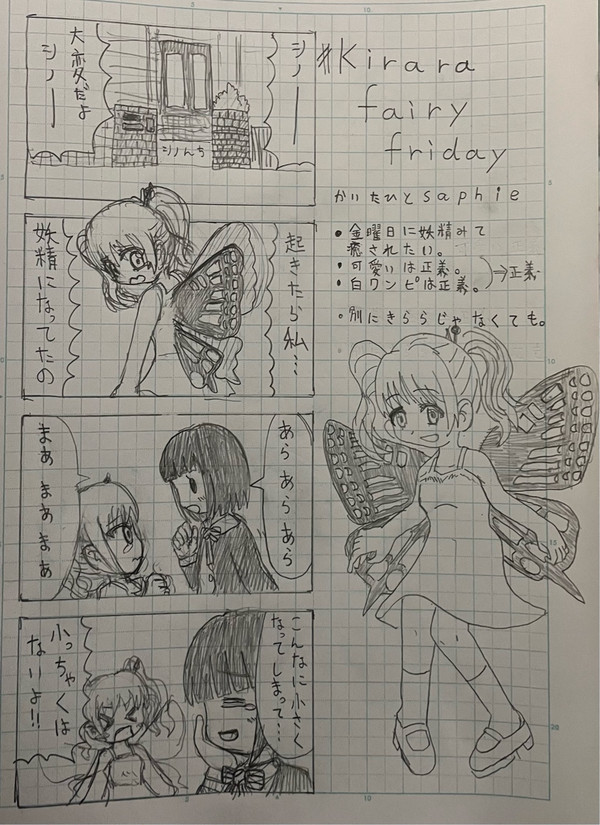 シノー
大変だよ
シノー
シノんち
起きたら私…
妖精になってたの
あらあらあら
まぁまぁまぁ
こんなに小さく
なってしまって…
小っちゃくは
ないよ!!
#Kirara
fairy
friday
かいたひと saphie
・金曜日に妖精みて
癒されたい。
・可愛いは正義。
・白ワンピは正義。
⇒正義
・別にきららじゃなくても。